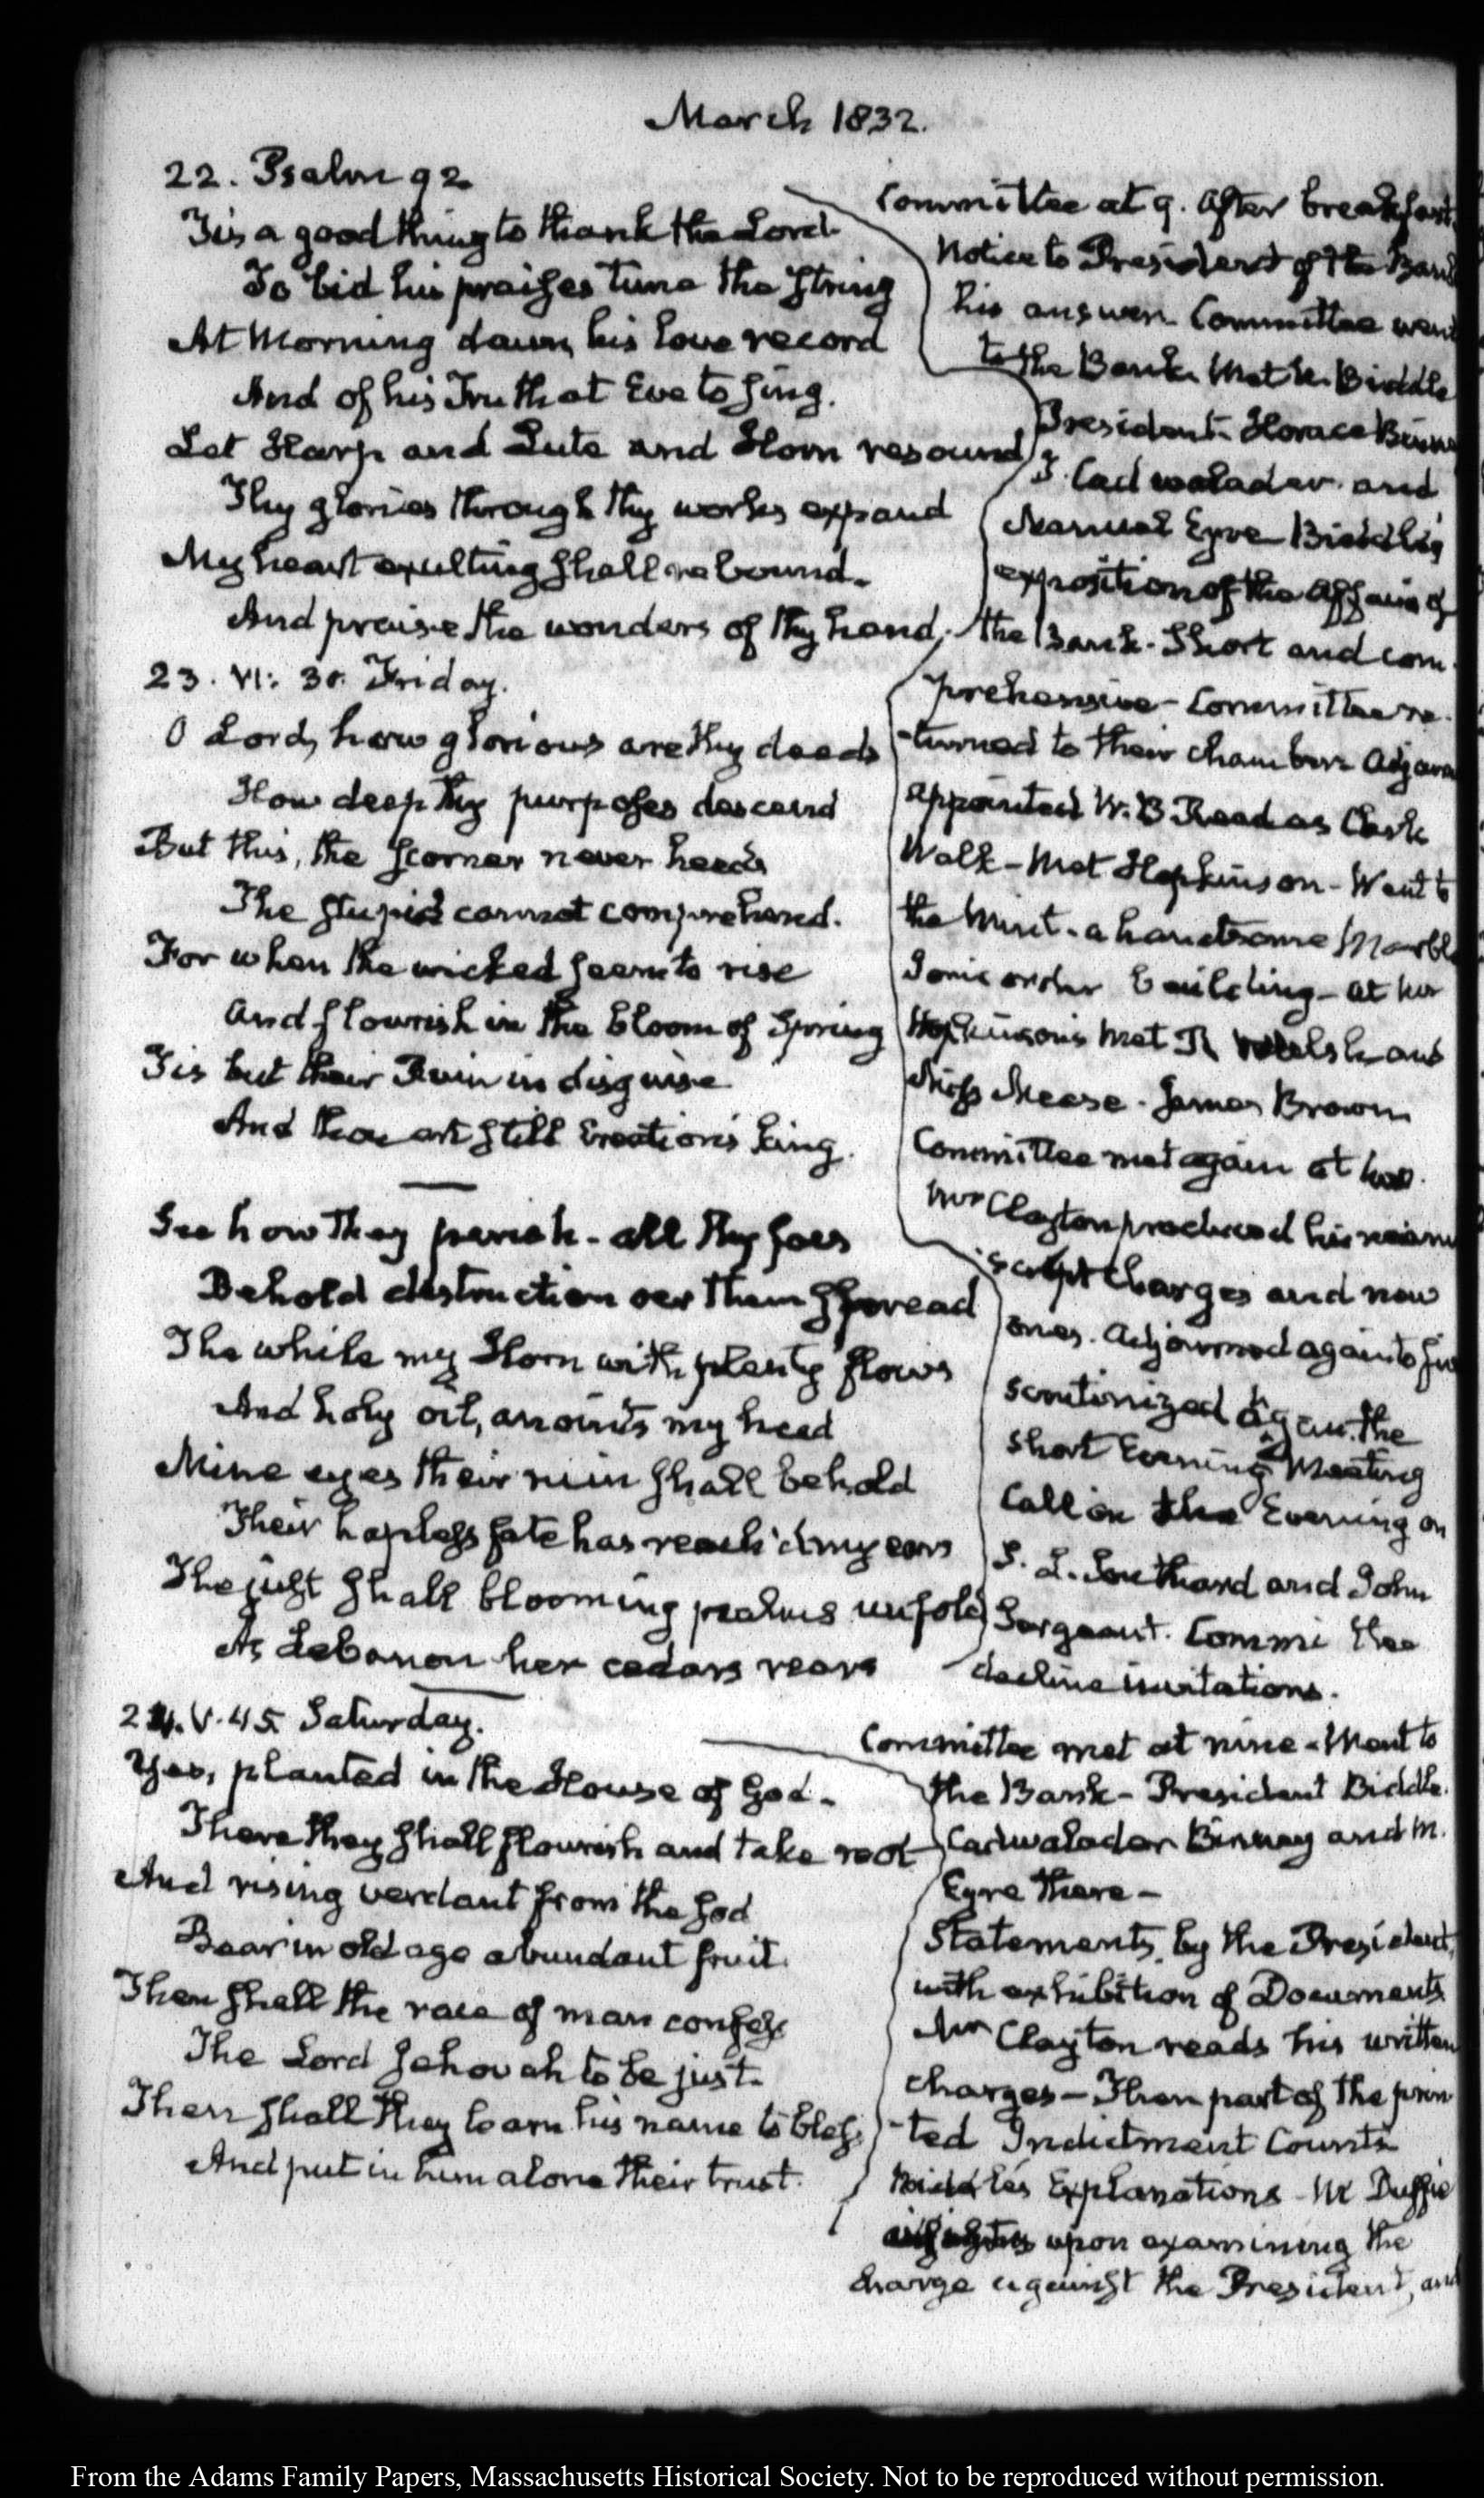 March 1832.
22. Psalm 92
Tis a good thing to thank the Lord
To bid his praises tune the string
At Morning dawn, his love record
And of his Truth at Eve to sing.
Let Harp and Lute and Horn resound
Thy glories through thy works expand
My heart exulting shall rebound.
And praise the wonders of thy hand.
23. VI: 30. Friday.
O Lord, how glorious are thy deeds
How deep thy purposes descend
But this, the scorner never heeds
The stupid cannot comprehend.
For when the wicked seem to rise
And flourish in the bloom of Spring
Tis but their Ruin in disguise
And thou art still Creation's king.
See how they perish - all thy foes
Behold destruction oer them spread
The while my Horn with plenty flows
And holy oil, anoints my head
Mine eyes their ruin shall behold
Their hapless fate has reach'd my ears
The just shall blooming psalms unfold
As Lebanon her cedars rears
24. V. 45. Saturday.
Yes, planted in the House of God.
There they shall flourish and take root
And rising verdant from the sod
Bear in old age abundant fruit.
Then shall the race of man confess
The Lord Jehovah to be just.
Then shall they learn his name to bless
And put in him alone their trust.
Committee at 9. After breakfast
Notice to President of the Bank
his answer Committee went
to the Bank Met N. Biddle
President Horace Binn
T. Cadwalader and
Manuel Eyre Biddle's
exposition of the affairs of
the Bank. Short and com
prehensive - Committee re
-turned to their chamber
appointed W. B Read as Clerk
Walk - Met Hopkinson - Went to
the Mint - a handsome Marble
Ionic order building - at Mr
Hopkinson's Met R Walsh and
Miss Mease - James Brown
Committee met again at
Mr Clayton produced his manu
script Charges and new
ones. Adjourned again to
scrutinized again. The
Short Evening Meeting
Call in the Evening on
S. L. Southard and John
Sergeant. Committee
decline invitations.
Committee met at nine - Went to
the Bank - President Biddle.
Cadwalader Binney and M.
Eyre there -
Statements by the President,
with exhibition of Documents
Mr Clayton reads his written
charges - Then part of the prin
-ted Indictment Counts
Biddle's Explanations - Mc Duffie
upon examining the
charge against the President, and
From the Adams Family Papers, Massachusetts Historical Society. Not to be reproduced without permission.